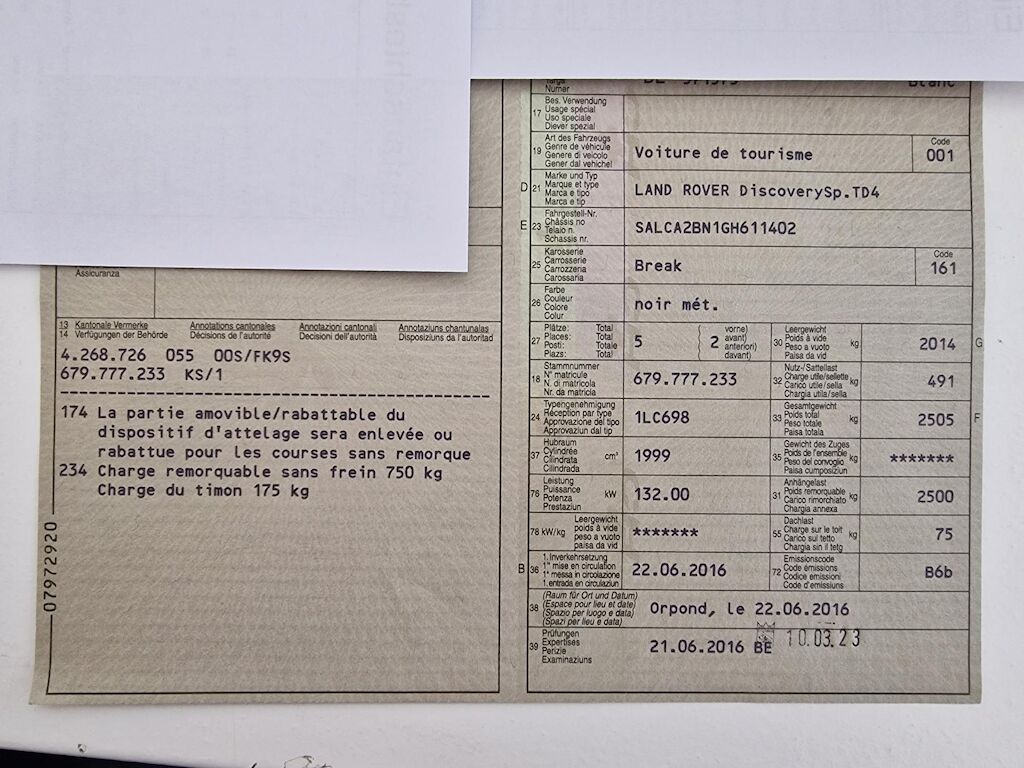 Assicuranza
13 Kantonale Vermerke Annotations cantonales Annotazioni cantonali Annotaziuns chantunalas
14 Verfügungen der Behörde Décisions de l'autorité Decisioni dell'autorità Disposiziuns da l'autoritad
4.268.726 055 00S/FK9S
679.777.233 KS/1
174 La partie amovible/rabattable du
dispositif d'attelage sera enlevée ou
rabattue pour les courses sans remorque
234 Charge remorquable sans frein 750 kg
Charge du timon 175 kg
07972920
Numer
17 Bes. Verwendung
Usage spécial
Uso speciale
Diever spezial
19 Art des Fahrzeugs
Genre de véhicule
Genere di veicolo
Gener dal vehichel
Voiture de tourisme
Code
001
D 21 Marke und Typ
Marque et type
Marca e tipo
Marca e tip
LAND ROVER DiscoverySp.TD4
E 23 Fahrgestell-Nr.
Châssis no
Telaio n.
Schassis nr.
SALCA2BN1GH611402
25 Karosserie
Carrosserie
Carrozzeria
Carossaria
Break
Code
161
26 Farbe
Couleur
Colore
Colur
noir mét.
27 Plätze: Total
Places: Total
Posti: Totale
Plazs: Total
5
2
vorne)
avant)
anteriori)
davant)
30 Leergewicht
Poids à vide
Peso a vuoto
Paisa da vid
kg
2014
G
18 Stammnummer
N° matricule
N. di matricola
Nr. da matricla
679.777.233
32 Nutz-/Sattellast
Charge utile/sellette
Carico utile/sella
Chargia utila/sella
kg
491
24 Typengenehmigung
Réception par type
Approvazione del tipo
Approvaziun dal tip
1LC698
33 Gesamtgewicht
Poids total
Peso totale
Paisa totala
kg
2505
F
37 Hubraum
Cylindrée
Cilindrata
Cilindrada
cm³
1999
35 Gewicht des Zuges
Poids de l'ensemble
Peso del convoglio
Paisa cumposiziun
kg
*******
76 Leistung
Puissance
Potenza
Prestaziun
kW
132.00
31 Anhängelast
Poids remorquable
Carico rimorchiato
Chargia annexa
kg
2500
78 kW/kg
Leergewicht
poids à vide
peso a vuoto
paisa da vid
*******
55 Dachlast
Charge sur le toit
Carico sul tetto
Chargia sin il tetg
kg
75
B 36 1. Inverkehrsetzung
1re mise en circulation
1a messa in circolazione
1. entrada en circulaziun
22.06.2016
72 Emissionscode
Code émissions
Codice emissioni
Code d'emissiuns
B6b
38 (Raum für Ort und Datum)
(Espace pour lieu et date)
(Spazio per luogo e data)
(Spazi per lieu e data)
Orpond, le 22.06.2016
39 Prüfungen
Expertises
Perizie
Examinaziuns
21.06.2016 BE
10.03.23